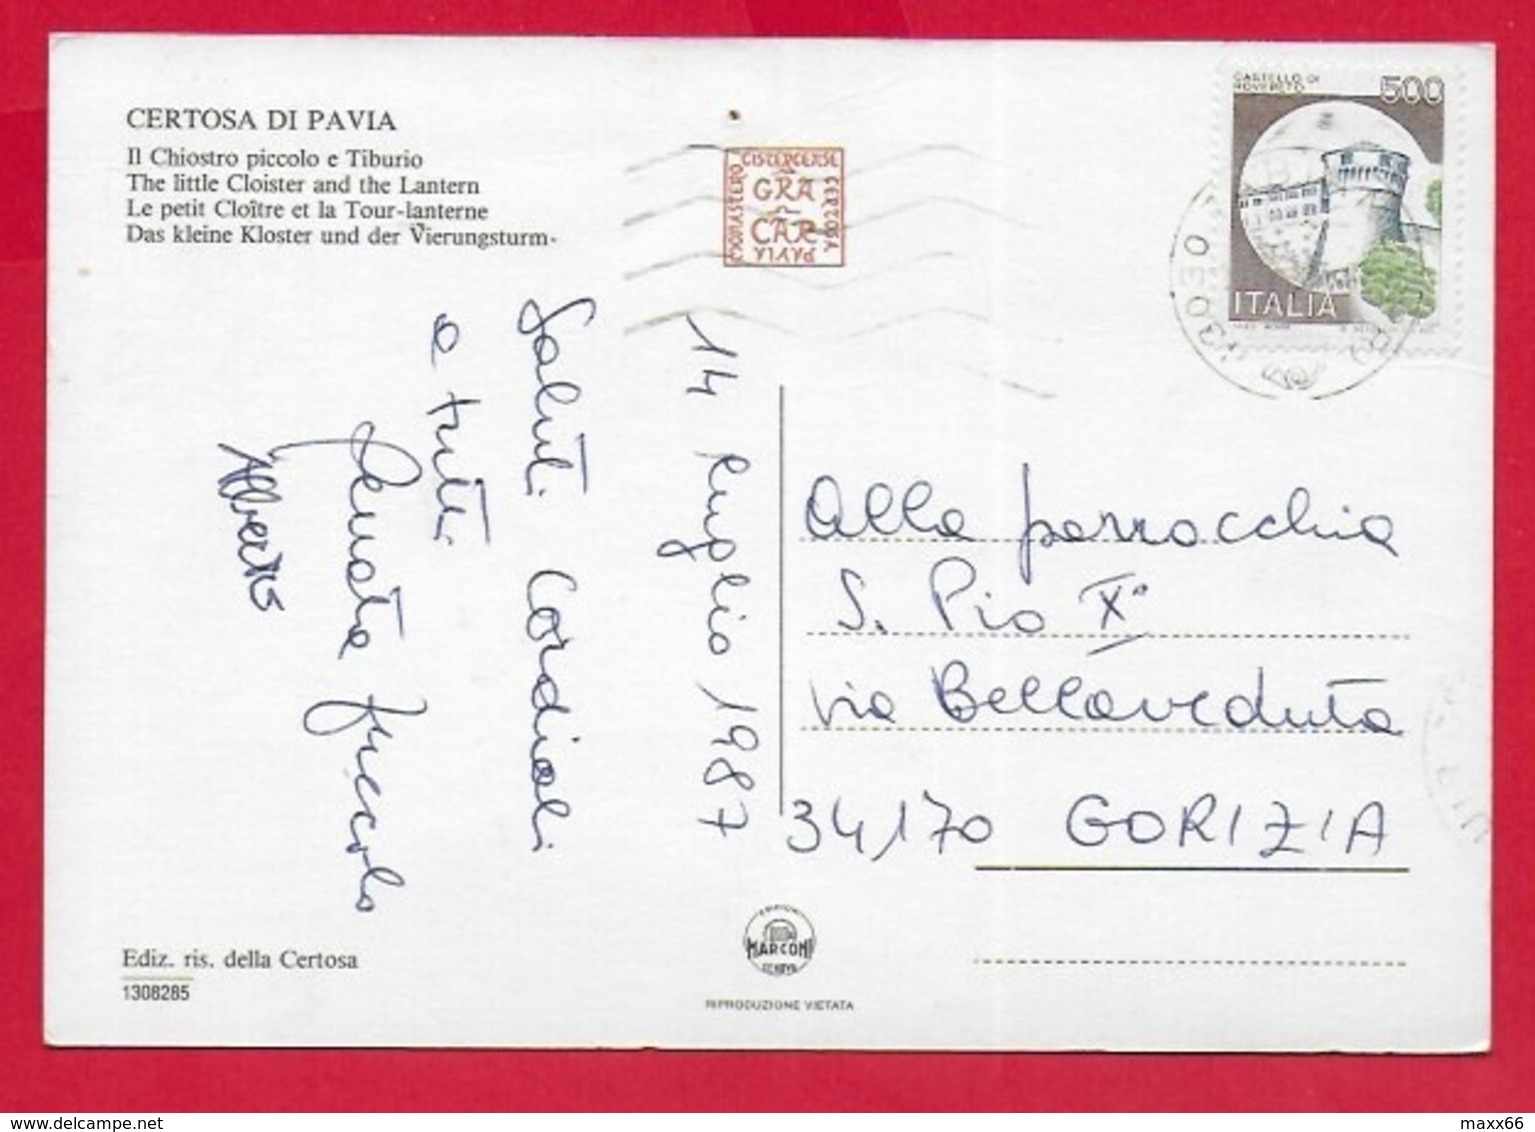 CERTOSA DI PAVIA
Il Chiostro piccolo e Tiburio
The little Cloister and the Lantern
Le petit Cloître et la Tour-lanterne
Das kleine Kloster und der Vierungsturm-
MONASTERO CISTERCENSE CERTOSA PAVIA
GRA
CAR
CASTELLO DI
ROVERETO
500
ITALIA
14 luglio 1987
Saluti Cordiali
a tutti
Alberto
Alla parrocchia
S. Pio X°
via Bellaveduta
34170 GORIZIA
Ediz. ris. della Certosa
1308285
EDIZIONI
MARCONI
GENOVA
RIPRODUZIONE VIETATA
delcampe.net
maxx66